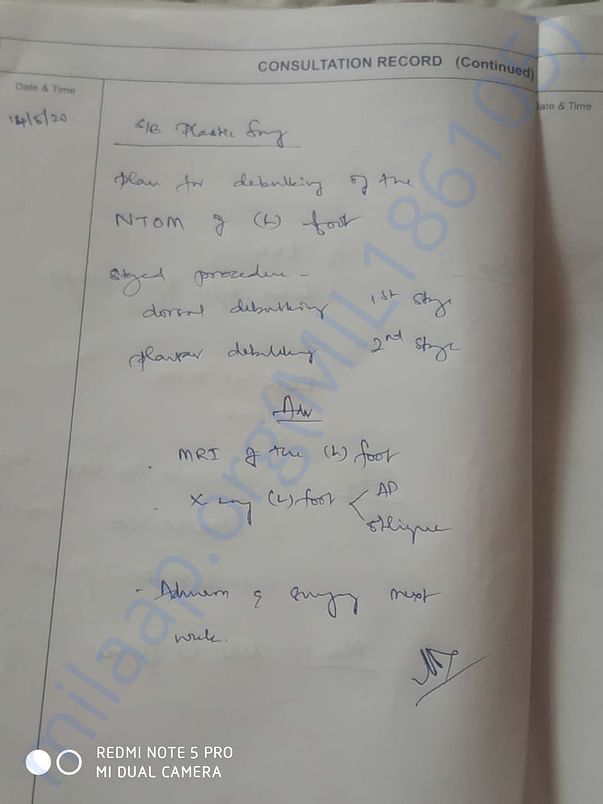 CONSULTATION RECORD (Continued)
Date & Time
ate & Time
14/5/20
S/B Plastic Surg
Plan for debulking of the
NTOM of (L) foot
Staged procedure -
dorsal debulking 1st stage
Plantar debulking 2nd stage
Adv
. MRI of the (L) foot
. X-ray (L) foot < AP
oblique
- Admission & surgery next
week.
milaap.org(MIL186105)
REDMI NOTE 5 PRO
MI DUAL CAMERA